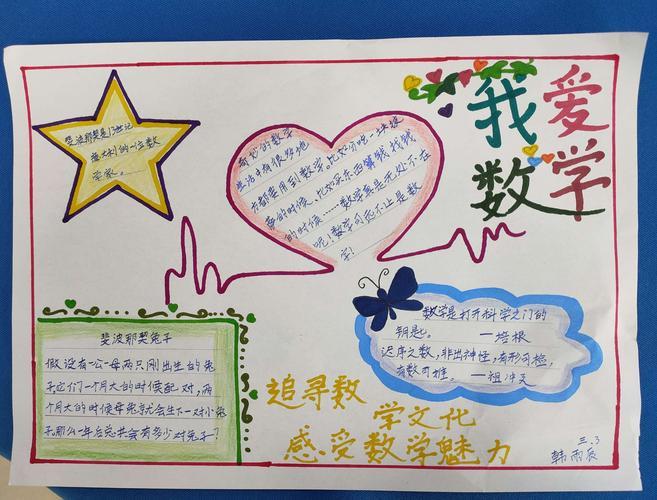 我爱
数学
斐波那契是13世纪
意大利的一位数
学家。
奇妙的数学
生活中有很多地
方都要用到数学。比如分吃一块蛋
糕的时候、比如买东西算钱找钱
的时候……数学真是无处不在
呢！数学可死不止是数
字！
斐波那契兔子
假设有一公一母两只刚出生的兔
子,它们一个月大的时候配对,两
个月大的时候母兔子就会生下一对小兔
子,那么一年后总共会有多少对兔子?
数学是打开科学之门的
钥匙。 —培根
迟序之数,非出神怪,有形可检,
有数可推。 —祖冲天
追寻数
学文化
感受数学魅力
三.3
韩雨辰